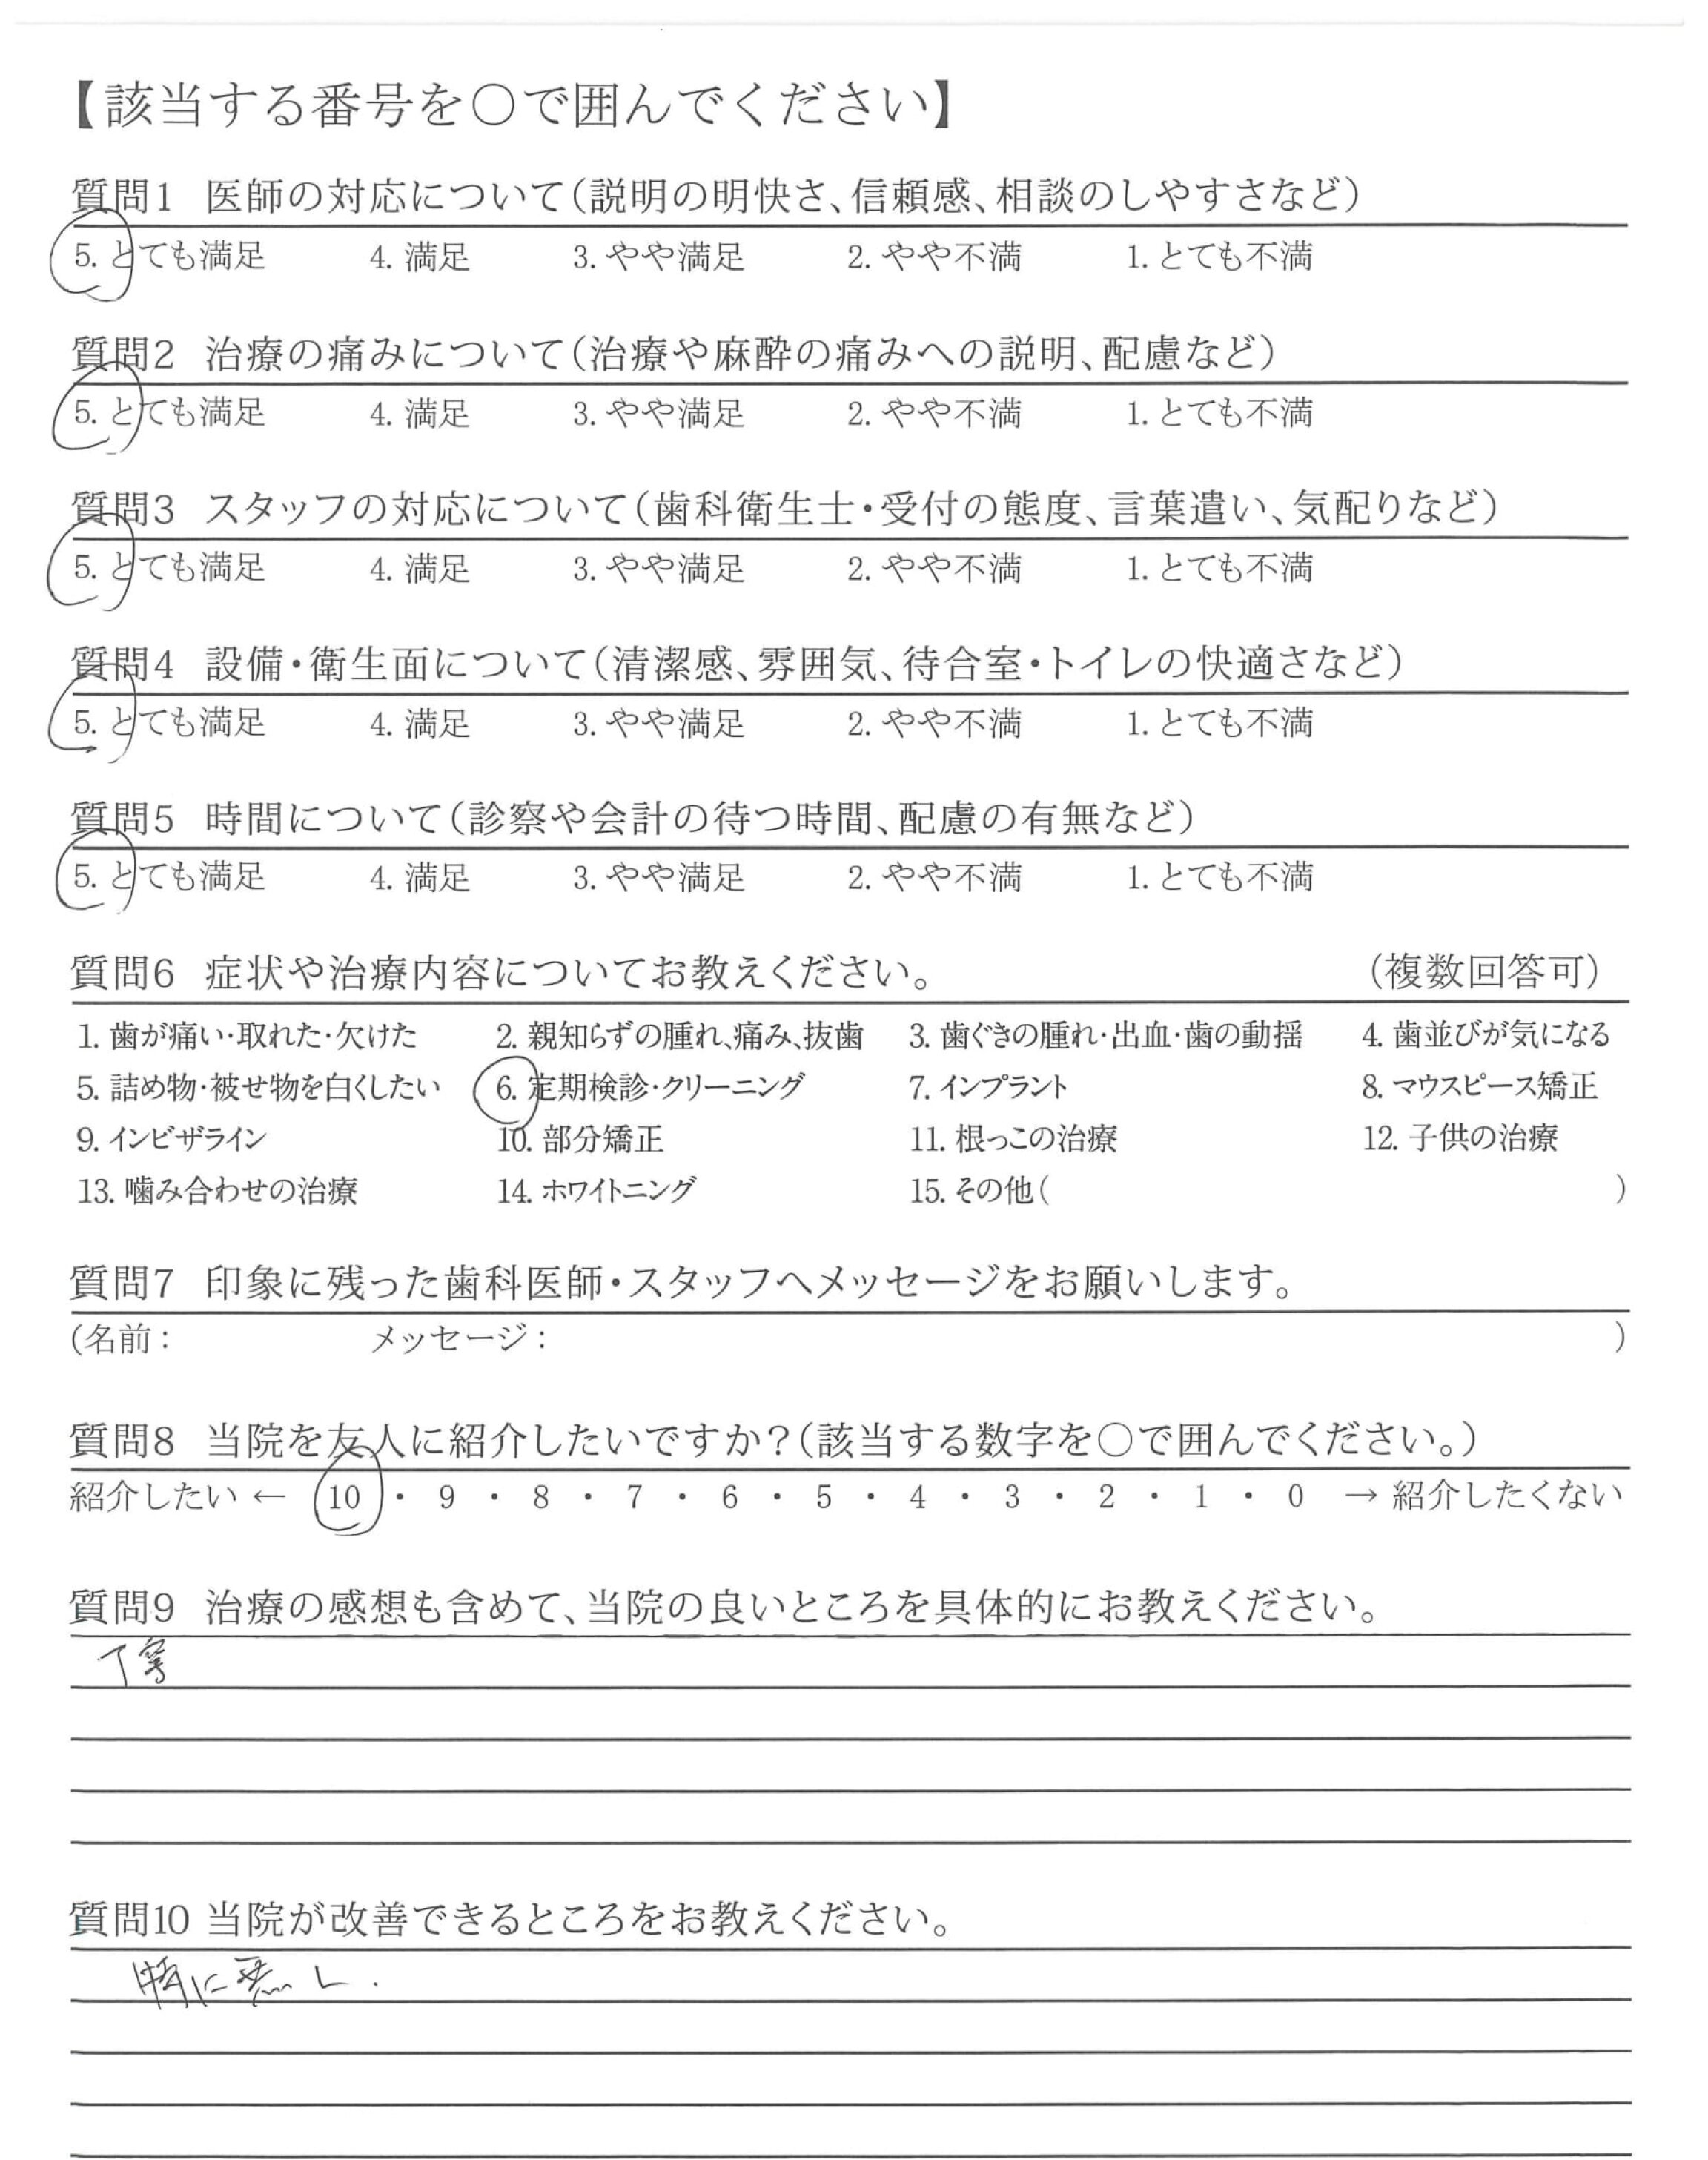 【該当する番号を〇で囲んでください】
質問1 医師の対応について(説明の明快さ、信頼感、相談のしやすさなど)
5. とても満足 4. 満足 3. やや満足 2. やや不満 1. とても不満
質問2 治療の痛みについて(治療や麻酔の痛みへの説明、配慮など)
5. とても満足 4. 満足 3. やや満足 2. やや不満 1. とても不満
質問3 スタッフの対応について(歯科衛生士・受付の態度、言葉遣い、気配りなど)
5. とても満足 4. 満足 3. やや満足 2. やや不満 1. とても不満
質問4 設備・衛生面について(清潔感、雰囲気、待合室・トイレの快適さなど)
5. とても満足 4. 満足 3. やや満足 2. やや不満 1. とても不満
質問5 時間について(診察や会計の待つ時間、配慮の有無など)
5. とても満足 4. 満足 3. やや満足 2. やや不満 1. とても不満
質問6 症状や治療内容についてお教えください。 (複数回答可)
1. 歯が痛い・取れた・欠けた 2. 親知らずの腫れ、痛み、抜歯 3. 歯ぐきの腫れ・出血・歯の動揺 4. 歯並びが気になる
5. 詰め物・被せ物を白くしたい 6. 定期検診・クリーニング 7. インプラント 8. マウスピース矯正
9. インビザライン 10. 部分矯正 11. 根っこの治療 12. 子供の治療
13. 噛み合わせの治療 14. ホワイトニング 15. その他( )
質問7 印象に残った歯科医師・スタッフへメッセージをお願いします。
(名前: メッセージ: )
質問8 当院を友人に紹介したいですか?(該当する数字を〇で囲んでください。)
紹介したい ← 10 ・ 9 ・ 8 ・ 7 ・ 6 ・ 5 ・ 4 ・ 3 ・ 2 ・ 1 ・ 0 → 紹介したくない
質問9 治療の感想も含めて、当院の良いところを具体的にお教えください。
丁寧
質問10 当院が改善できるところをお教えください。
特に無し.